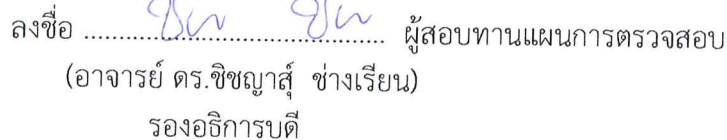 ลงชื่อ ................................................ ผู้สอบทานแผนการตรวจสอบ
(อาจารย์ ดร.ชิชญาสุ์ ช่างเรียน)
รองอธิการบดี